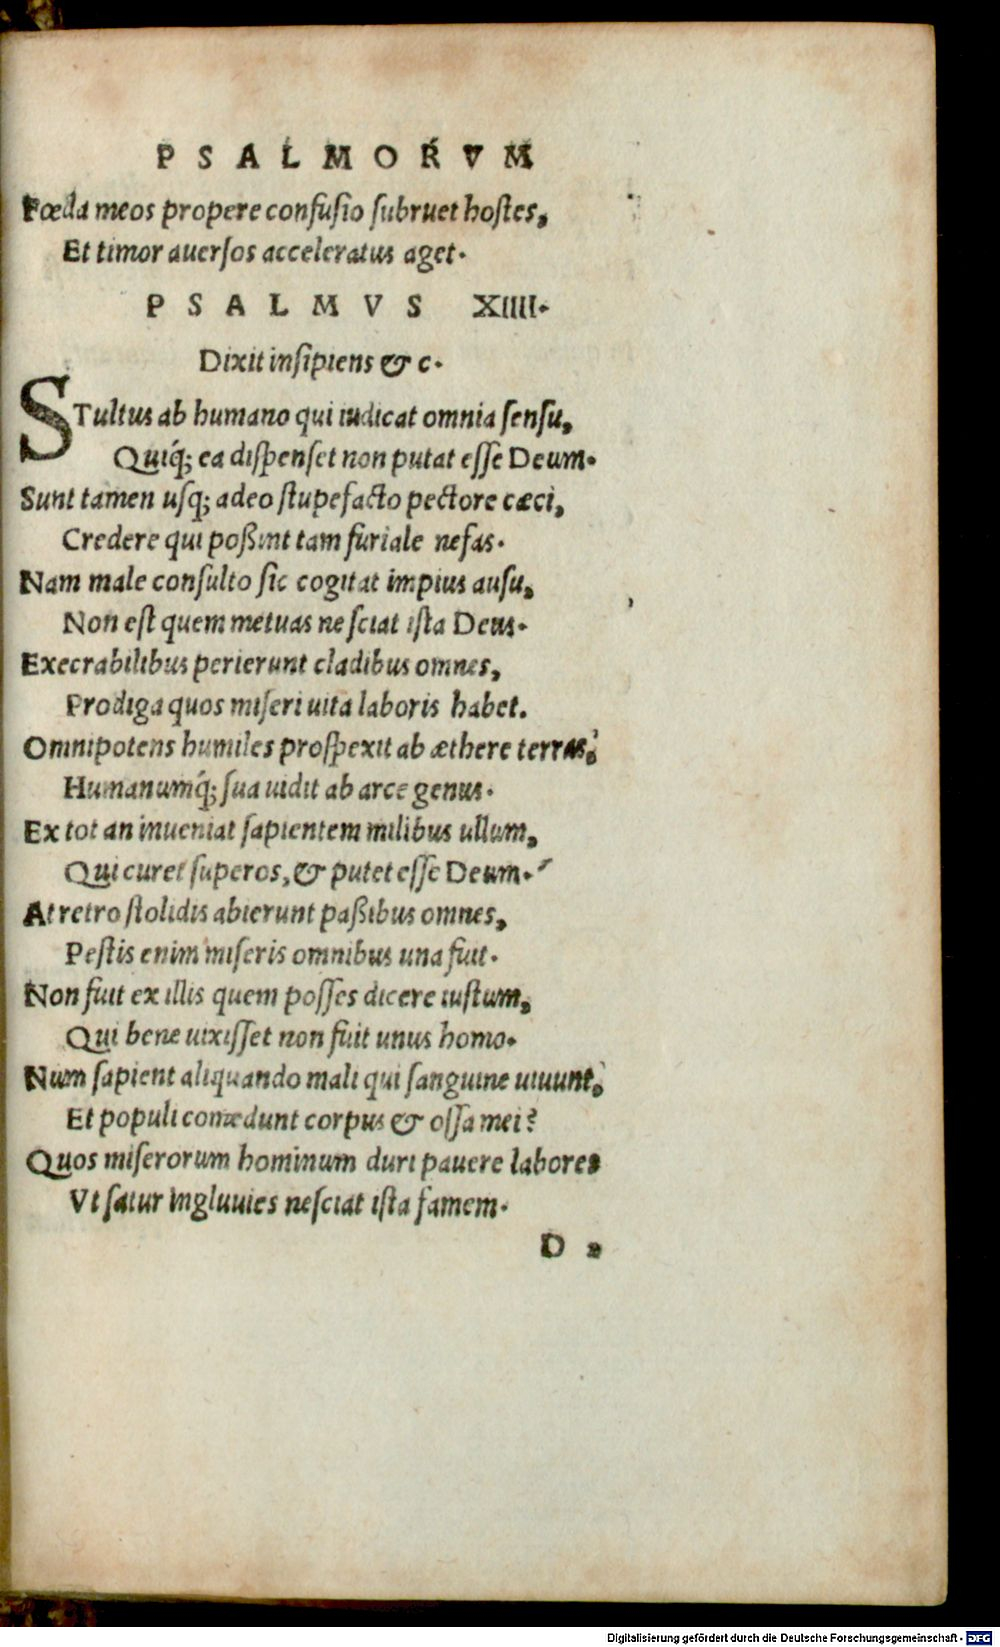 PSALMORVM
Fœda meos propere confusio subruet hostes,
Et timor auersos acceleratus aget.
PSALMVS XIIII.
Dixit insipiens & c.
STultus ab humano qui iudicat omnia sensu,
Quiq́; ea dispenset non putat esse Deum.
Sunt tamen usq; adeo stupefacto pectore cæci,
Credere qui poßint tam furiale nefas.
Nam male consulto sic cogitat impius ausu,
Non est quem metuas ne sciat ista Deus.
Execrabilibus perierunt cladibus omnes,
Prodiga quos miseri uita laboris habet.
Omnipotens humiles prospexit ab æthere terras;
Humanumq́; sua uidit ab arce genus.
Ex tot an inueniat sapientem milibus ullum,
Qui curet superos, & putet esse Deum.
At retro stolidis abierunt paßibus omnes,
Pestis enim miseris omnibus una fuit.
Non fuit ex illis quem posses dicere iustum,
Qui bene uixisset non fuit unus homo.
Num sapient aliquando mali qui sanguine uiuunt;
Et populi comædunt corpus & ossa mei?
Quos miserorum hominum duri pauere labores
Vt satur ingluuies nesciat ista famem.
D 2
Digitalisierung gefördert durch die Deutsche Forschungsgemeinschaft - DFG